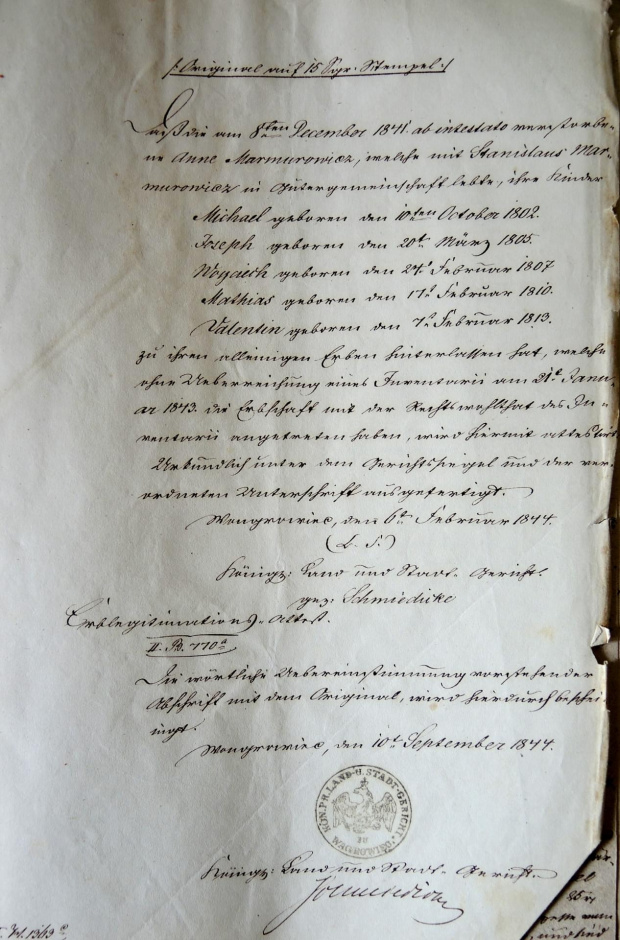 /: Original auf 15 Sgr. Stempel :/
Daß die am 8ten December 1841. ab intestato verstorbe-
ne Anne Marmurowicz, welche mit Stanislaus Mar-
murowicz in Gütergemeinschaft lebte, ihre Kinder
Michael geboren den 10ten October 1802.
Joseph geboren den 20t März 1805.
Woyciech geboren den 24t Februar 1807
Mathias geboren den 17t Februar 1810.
Valentin geboren den 7t Februar 1813.
zu ihren alleinigen Erben hinterlassen hat, welche
ohne Ueberreichung eines Inventarii am 31t Janu-
ar 1843. die Erbschaft mit der Rechtswohlthat des In-
ventarii angetreten haben, wird hiermit attestirt
Urkundlich unter dem Gerichtssiegel und der ver-
ordneten Unterschrift ausgefertigt.
Wongrowiec, den 6t Februar 1844.
(L. S.)
Königl: Land und Stadt-Gericht.
gez: Schmiedicke
Erblegitimations-Attest.
II. B. 770a
Die wörtliche Uebereinstimmung vorstehender
Abschrift mit dem Original, wird hierdurch beschei-
nigt.
Wongrowiec, den 10t September 1844.
KÖN. PR. LAND- U. STADT-GERICHT
ZU
WĄGROWIEC
Königl: Land und Stadt-Gericht